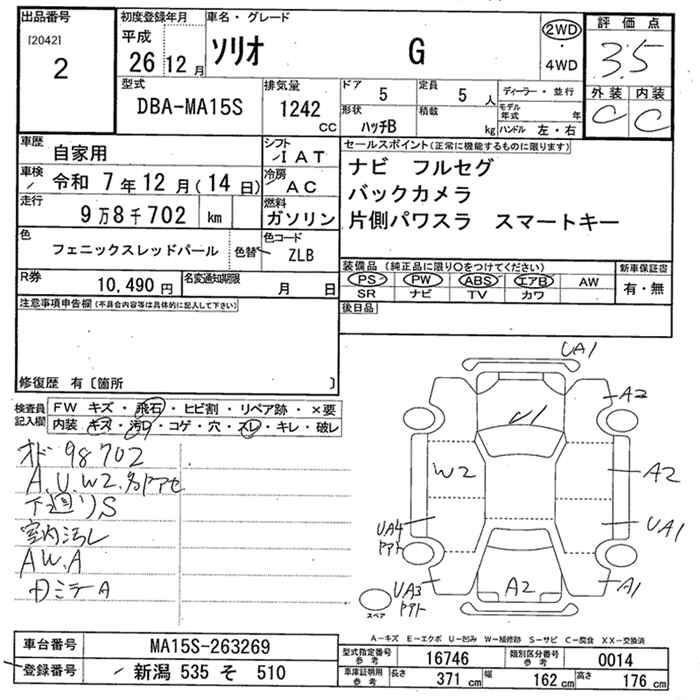 出品番号 初度登録年月 車名・グレード 評価点
[2042] 平成 ソリオ G 2WD ・ 4WD 3.5
2 26 12月
型式 排気量 ドア 定員 ディーラー・並行 外装 内装
DBA-MA15S 1242 cc 5 5人 モデル年式 年 C C
形状 積載
ハッチB kg ハンドル 左・右
車歴 自家用 シフト IAT セールスポイント(正常に機能するものに限ります)
車検 令和 7年 12月(14日) 冷房 AC ナビ フルセグ
走行 9万8千702 km 燃料 ガソリン バックカメラ
片側パワスラ スマートキー
色 フェニックスレッドパール 色替 色コード ZLB
R券 10,490円 名変通知期限 月 日
装備品(純正品に限り〇をつけてください) 新車保証書
PS PW ABS エアB AW 有・無
SR ナビ TV カワ
注意事項申告欄(不具合内容等は具体的に記入して下さい) 後日品
修復歴 有〔箇所 〕
検査員記入欄 FW キズ・飛石・ヒビ割・リペア跡・×要
内装 キズ・汚れ・コゲ・穴・スレ・キレ・破レ
オド 98702
A.U.W2.
下廻りS
室内汚レ
AW.A
UA1
A2
U1
W2
A2
UA4
UA1
UA3
A2
A1
スペア
A-キズ E-エクボ U-凹み W-補修跡 S-サビ C-腐食 XX-交換済
車台番号 MA15S-263269 型式指定参考 16746 類別区分番号参考 0014
登録番号 新潟 535 そ 510 車庫証明用参考 長さ 371 cm 幅 162 cm 高さ 176 cm